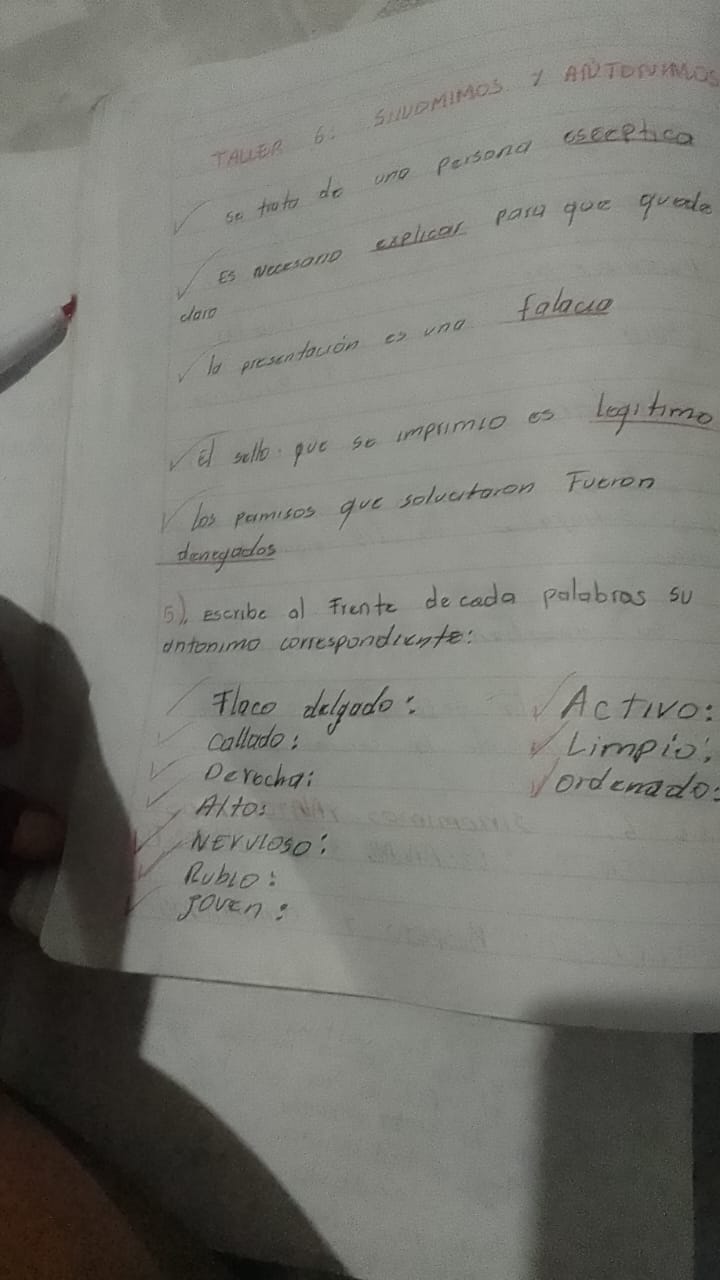 TALLER 6. SINOMIMOS Y ANTONIMOS
se trata de una persona esceptica
Es necesario explicar para que quede
claro
la presentación es una falacia
él sello que se imprimio es legitimo
los pamisos que solucitaron Fueron
denegados
5). Escribe al Frente de cada palabras su
antonimo correspondiente:
Flaco delgado: Activo:
Callado: Limpio:
Derecha: ordenado:
Alto:
NERVIOSO:
Rubio:
Joven: